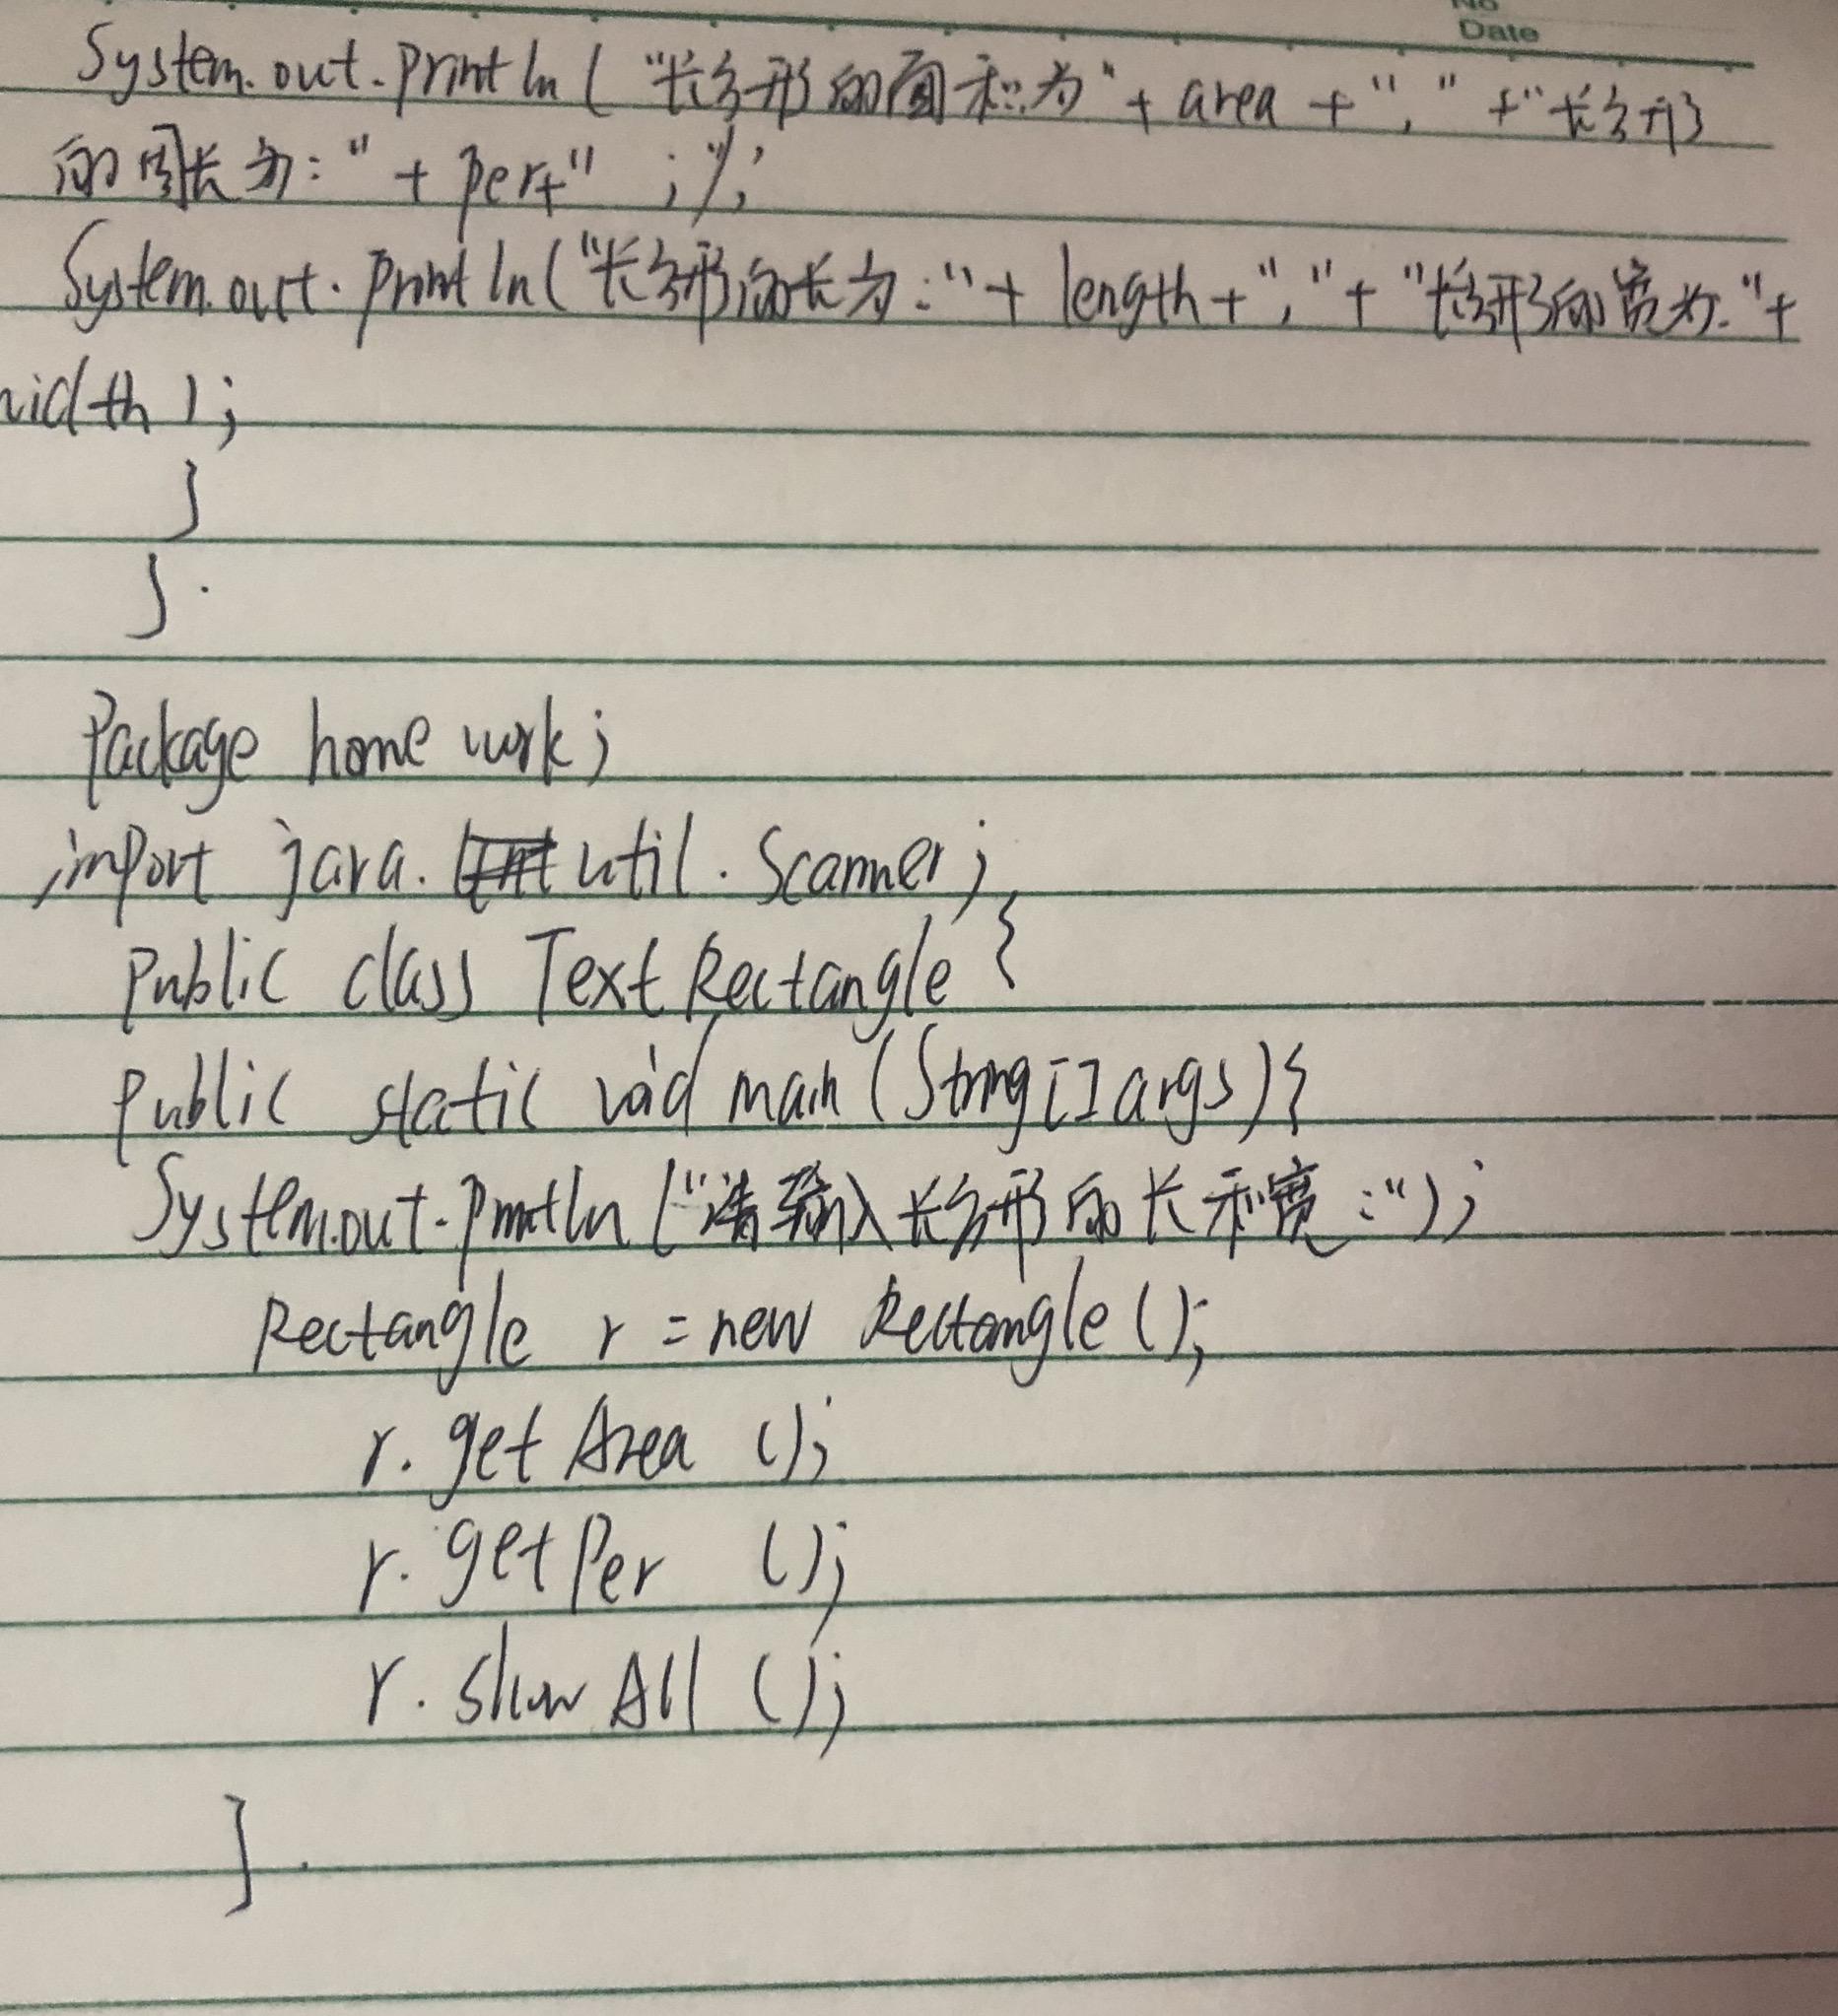 No
Date
System.out.println("长方形的面积为"+area+","+"长方形
的周长为:"+per+";");
System.out.println("长方形的长为:"+length+","+"长方形的宽为:"+
width);
}
}.
Package home work;
import java.util.Scanner;
public class TextRectangle {
public static void main(String[]args){
System.out.println("请输入长方形的长和宽:");
Rectangle r=new Rectangle();
r.getArea();
r.getPer();
r.showAll();
}.